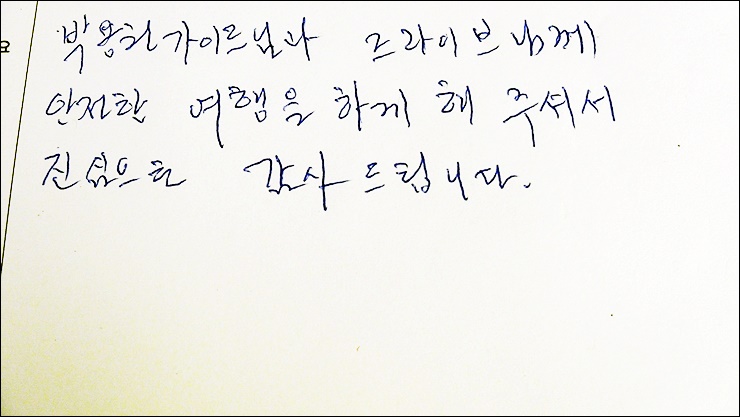 박용현 가이드님과 드라이브님께
안전한 여행을 하게 해 주셔서
진심으로 감사드립니다.
요